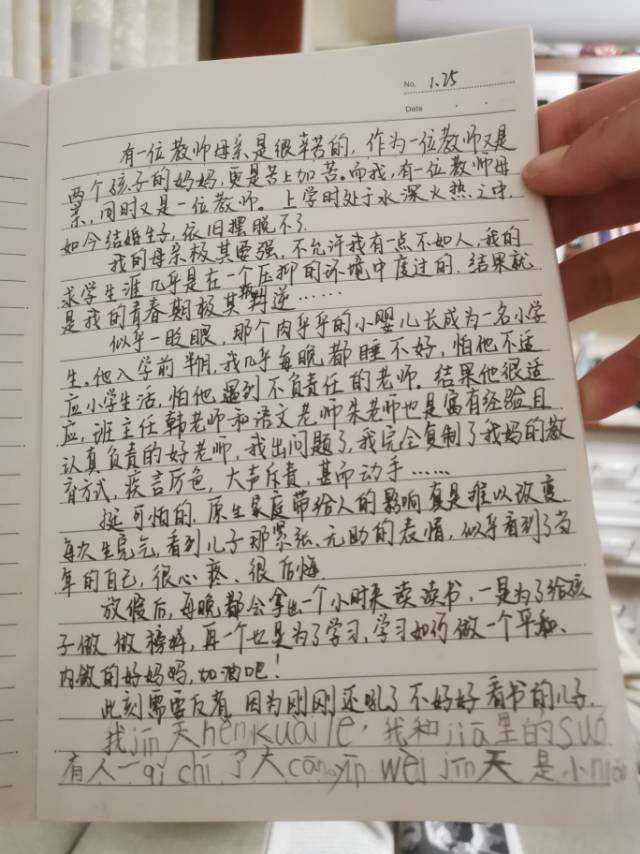 No. 1.25
Date
有一位教师母亲是很辛苦的，作为一位教师又是
两个孩子的妈妈，更是苦上加苦。而我，有一位教师母
亲，同时又是一位教师。上学时处于水深火热之中，
如今结婚生子，依旧摆脱不了.
我的母亲极其要强，不允许我有一点不如人，我的
求学生涯几乎是在一个压抑的环境中度过的，结果就
是我的青春期极其叛逆……
似乎一眨眼，那个肉乎乎的小婴儿长成为一名小学
生，他入学前半月，我几乎每晚都睡不好，怕他不适
应小学生活，怕他遇到不负责任的老师，结果他很适
应，班主任韩老师和语文老师朱老师也是富有经验且
认真负责的好老师，我出问题了，我完全复制了我妈的教
育方式，疾言厉色，大声斥责，甚而动手……
挺可怕的，原生家庭带给人的影响真是难以改变.
每次生完气，看到儿子那紧张、无助的表情，似乎看到了当
年的自己，很心疼、很后悔.
放假后，每晚都会拿出一个小时来读读书，一是为了给孩
子做做榜样，再一个也是为了学习，学习如何做一个平和、
内敛的好妈妈，加油吧！
此刻需要反省，因为刚刚还吼了不好好看书的儿子.
我jīn天hěn kuài lè，我和jiā里的suǒ
有人一qǐ chī了大cān，yīn wèi jīn天是小